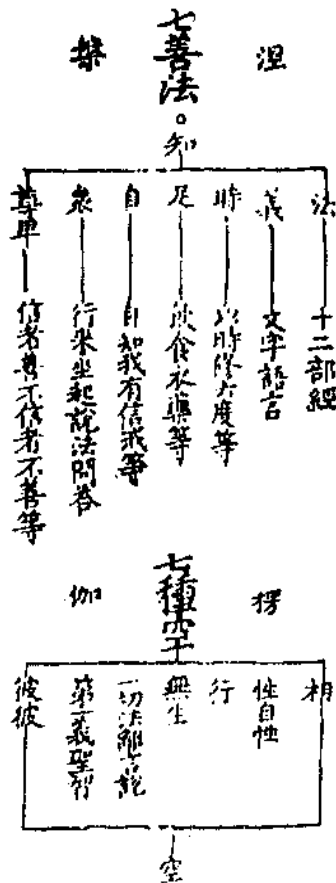 涅槃
七善法。知
法 十二部經
義 文字語言
時 以時修六度等
足 飲食衣藥等
自 自知我有信戒等
衆 行來坐起說法問答
尊卑 信者善不信者不善等
楞伽
七種空
相
性自性
行
無生
一切法離言說
第一義聖智
彼彼
空